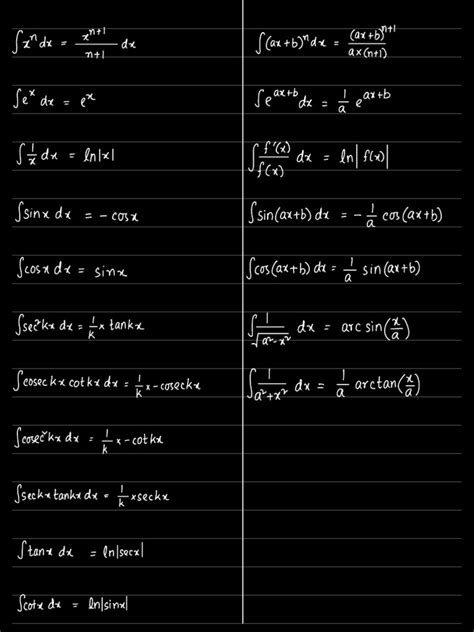 ∫xⁿ dx = xⁿ⁺¹/n+1 dx
∫eˣ dx = eˣ
∫1/x dx = ln|x|
∫sinx dx = - cosx
∫cosx dx = sinx
∫sec²kx dx = 1/k × tankx
∫coseckx cotkx dx = 1/k × -coseckx
∫cosec²kx dx = 1/k × -cotkx
∫seckx tankx dx = 1/k × seckx
∫tanx dx = ln|secx|
∫cotx dx = ln|sinx|
∫(ax+b)ⁿ dx = (ax+b)ⁿ⁺¹/a×(n+1)
∫eᵃˣ⁺ᵇ dx = 1/a eᵃˣ⁺ᵇ
∫f'(x)/f(x) dx = ln|f(x)|
∫sin(ax+b) dx = - 1/a cos(ax+b)
∫cos(ax+b) dx = 1/a sin(ax+b)
∫1/√a²-x² dx = arc sin(x/a)
∫1/a²+x² dx = 1/a arctan(x/a)